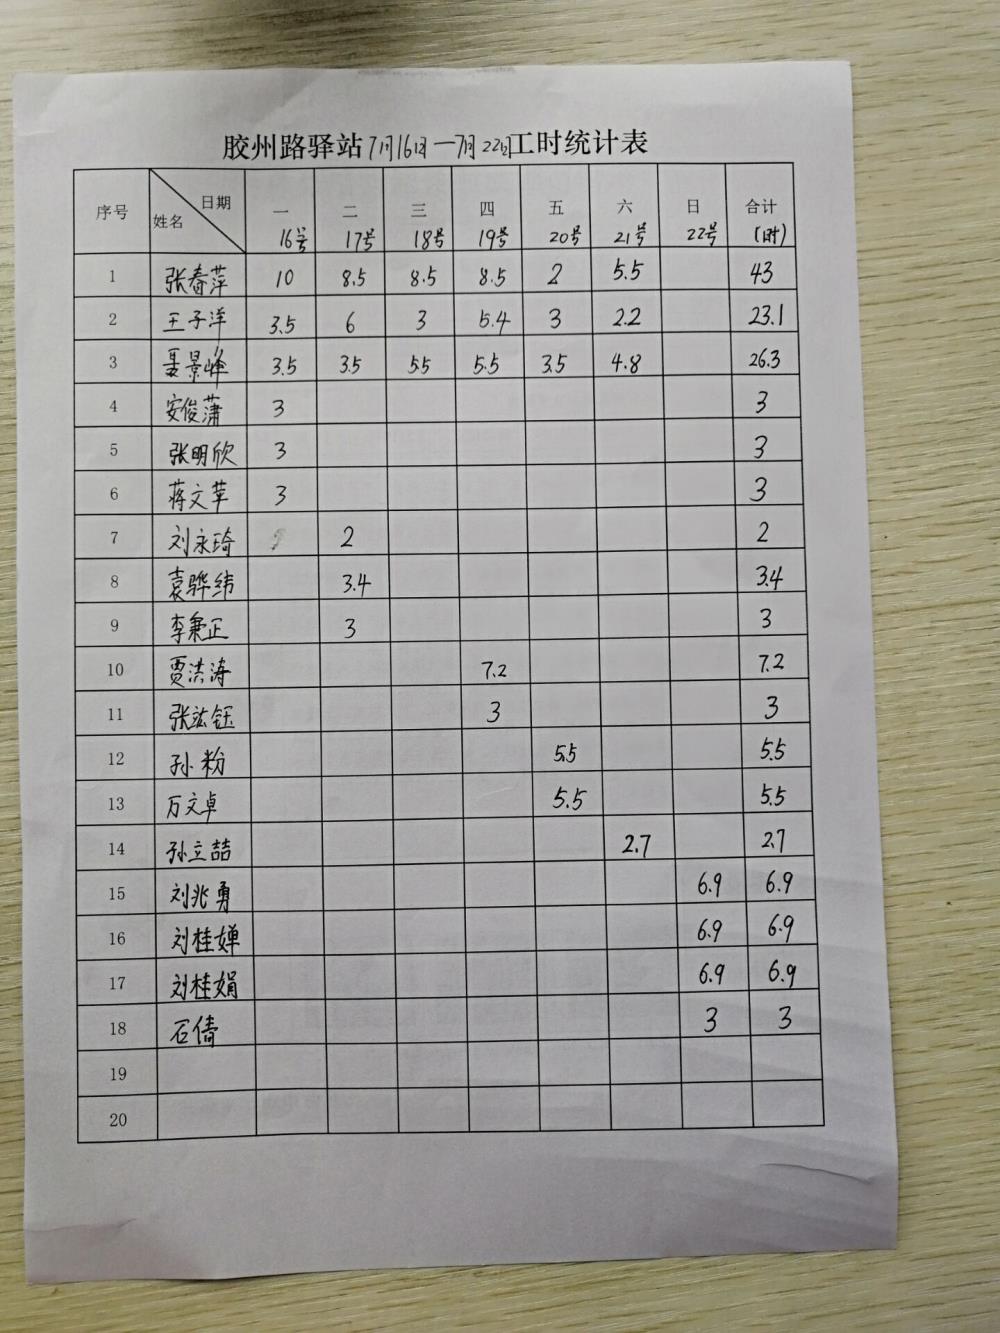 胶州路驿站7月16日—7月22日工时统计表
序号 日期 姓名 一 16号 二 17号 三 18号 四 19号 五 20号 六 21号 日 22号 合计 (时)
1 张春萍 10 8.5 8.5 8.5 2 5.5 43
2 王子洋 3.5 6 3 5.4 3 2.2 23.1
3 聂景峰 3.5 3.5 5.5 5.5 3.5 4.8 26.3
4 安俊蒲 3 3
5 张明欣 3 3
6 蒋文苹 3 3
7 刘永琦 2 2
8 袁骅纬 3.4 3.4
9 李秉正 3 3
10 贾洪涛 7.2 7.2
11 张竑钰 3 3
12 孙粉 5.5 5.5
13 万文卓 5.5 5.5
14 孙立喆 2.7 2.7
15 刘兆勇 6.9 6.9
16 刘桂婵 6.9 6.9
17 刘桂娟 6.9 6.9
18 石倩 3 3
19
20